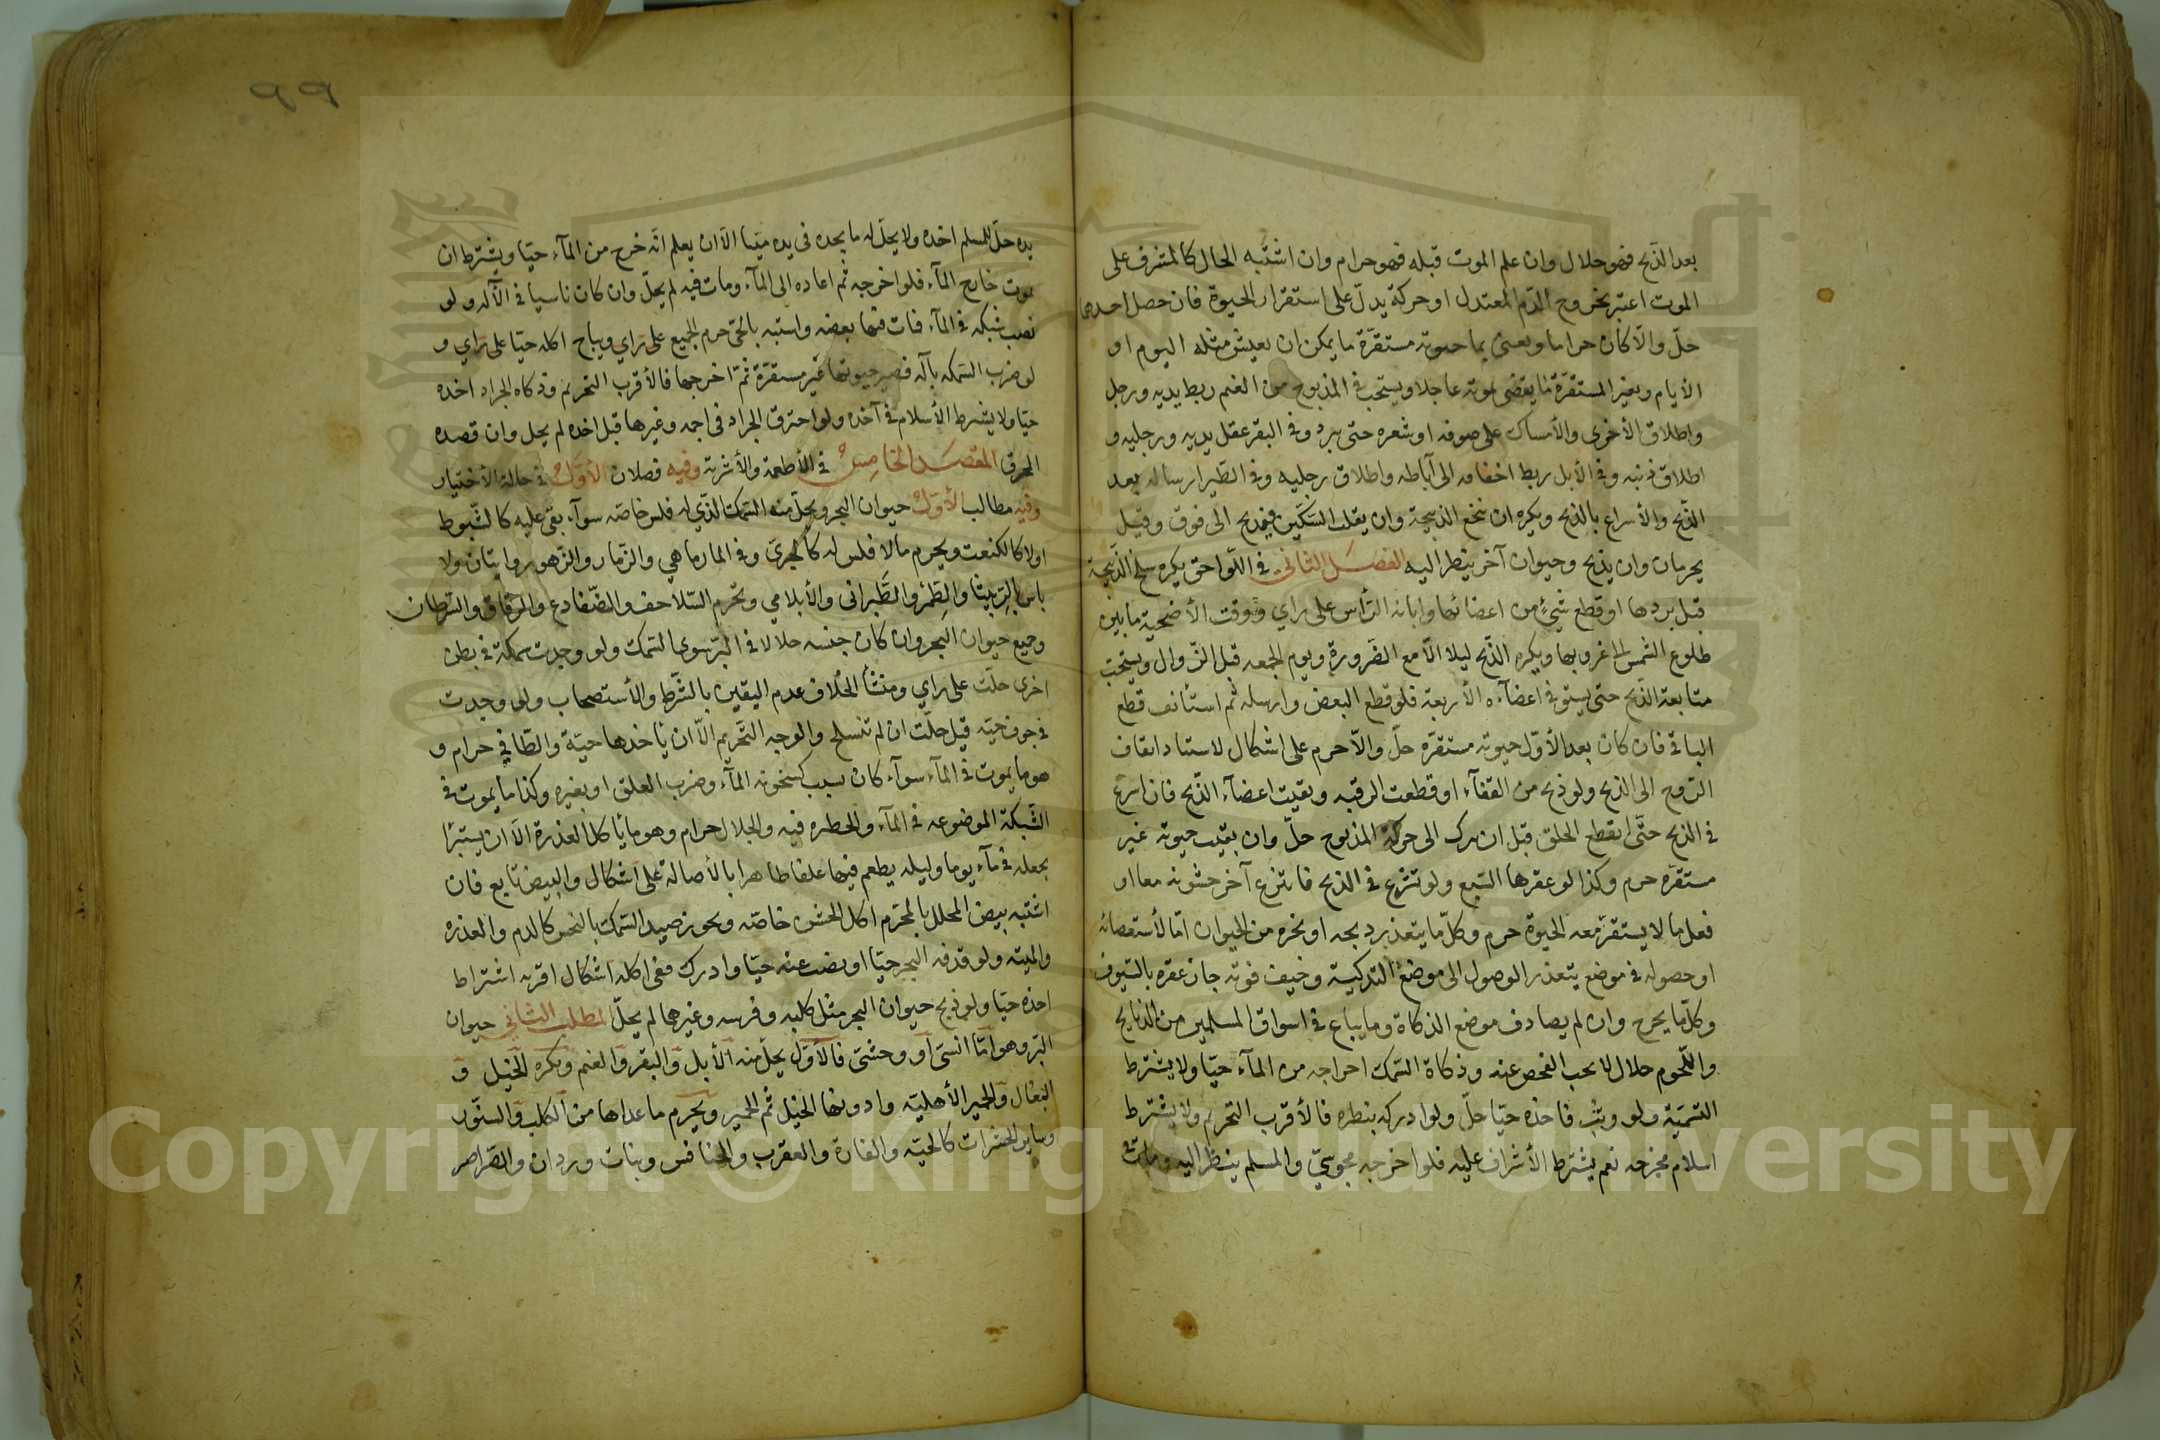 بعد الذبح فهو حلال وان علم الموت قبله فهو حرام وان اشتبه الحال كالمشرف على
الموت اعتبر بخروج الدم المعتدل او حركة يدل على استقرار الحيوة فان حصل احدهما
حل والا كان حراما ويعنى بما حيوته مستقرة ما يمكن ان يعيش مثله اليوم او
الأيام وبغير المستقرة ما يقضى بموته عاجلا ويستحب في المذبوح من الغنم ربط يديه ورجل
واطلاق الأخرى والأمساك على صوفه او شعره حتى يبرد وفي البقر عقل يديه ورجليه و
اطلاق ذنبه وفي الأبل ربط اخفافه الى آباطه واطلاق رجليه وفي الطير ارساله بعد
الذبح والأسراع بالذبح ويكره ان ينخع الذبيحة وان يقلب السكين فيذبح الى فوق وقيل
يحرمان وان يذبح وحيوان آخر ينظر اليه الفصل الثانى في اللواحق يكره سلخ الذبيحة
قبل بردها او قطع شئ من اعضائها وابانة الرأس على راي ووقت الأضحية ما بين
طلوع الشمس الى غروبها ويكره الذبح ليلا الا مع الضرورة ويوم الجمعه قبل الزوال ويستحب
متابعة الذبح حتى يستوفي اعضاءه الأربعة فلو قطع البعض وارسله ثم استأنف قطع
الباقي فان كان بعد الأول حيوته مستقره حل والا حرم على اشكال لاستناد ازهاق
الروح الى الذبح ولو ذبح من القفاء او قطعت الرقبه وبقيت اعضاء الذبح فان اسرع
في الذبح حتى انقطع الحلق قبل ان يترك الى حركة المذبوح حل وان بقيت حيوته غير
مستقره حرم وكذا لو عقرها السبع ولو تنزع في الذبح فانتزع آخر حشوته معا او
فعل ما لا يستقر معه الحيوة حرم وكل ما يتعذر ذبحه او نحره من الحيوان اما لأستعصائه
او حصوله في موضع يتعذر الوصول الى موضع التذكية وخيف فوته جاز عقره بالسيوف
وكل ما يجرح وان لم يصادف موضع الذكاة وما يباع في اسواق المسلمين من الذبايح
واللحوم حلال لا يجب الفحص عنه وذكاة السمك اخراجه من الماء حيا ولا يشترط
التسمية ولو وثب فاخذه حيا حل ولو ادركه بنظره فالأقرب التحريم ولا يشترط
اسلام مخرجه نعم يشترط الأشراف عليه فلو اخرجه مجوسي والمسلم ينظر اليه ومات في
٩٩
يده حل للمسلم اخذه ولا يحل له ما يجده في يده ميتا الا ان يعلم انه خرج من الماء حيا ويشترط ان
يموت خارج الماء فلو اخرجه ثم اعاده الى الماء ومات فيه لم يحل وان كان ناسيا في الآله ولو
نصب شبكه في الماء فمات فيها بعضه واشتبه بالحي حرم الجميع على راي ويباح اكله حيا على راي و
لو ضرب السمكه بآله فصير حيوتها غير مستقرة ثم اخرجها فالأقرب التحريم وذكاه الجراد اخذه
حيا ولا يشترط الأسلام في آخذه ولو احترق الجراد في اجمه وغيرها قبل اخذه لم يحل وان قصده
المحرق المقصد الخامس في الأطعمة والأشربة وفيه فصلان الأول في حالة الأختيار
وفيه مطالب الأول حيوان البحر ويحل منه السمك الذي له فلس خاصه سواء بقي عليه كالشبوط
او لا كالكنعت ويحرم ما لا فلس له كالجرى وفي المارماهي والزمار والزهو روايتان ولا
باس بالربيثا والطمر والطبراني والأبلامي وتحرم السلاحف والضفادع والرقاق والسرطان
وجميع حيوان البحر وان كان جنسه حلالا في البر سوى السمك ولو وجدت سمكة في بطن
اخرى حلت على راي ومنشأ الخلاف عدم اليقين بالشرط والأستصحاب ولو وجدت
في جوف حيه قيل حلت ان لم تنسلخ والوجه التحريم الا ان ياخذها حية والطافي حرام و
هو ما يموت في الماء سواء كان بسبب كسخونة الماء وضرب العلق او بغيره وكذا ما يموت في
الشبكة الموضوعه في الماء والحظيره فيه والجلال حرام وهو ما ياكل العذرة الا ان يستبرأ
بجعله في ماء يوما وليله يطعم فيها علفا طاهرا بالأصالة على اشكال والبيض تابع فان
اشتبه بيض المحلل بالمحرم اكل الخشن خاصه ويجوز صيد السمك بالنجس كالدم والعذره
والميته ولو قذفه البحر حيا او نضب عنه حيا وادرك ففي اكله اشكال اقربه اشتراط
اخذه حيا ولو ذبح حيوان البحر مثل كلبه وفرسه وغيرهما لم يحل المطلب الثاني حيوان
البر وهو اما انسى او وحشى فالأول يحل منه الأبل والبقر والغنم ويكره الخيل و
البغال والحمير الأهلية وادونها الخيل ثم الحمير ويحرم ما عداها من الكلب والسنور
وساير الحشرات كالحية والفارة والعقرب والخنافس وبنات وردان والصراصر
Copyright © King Saud University